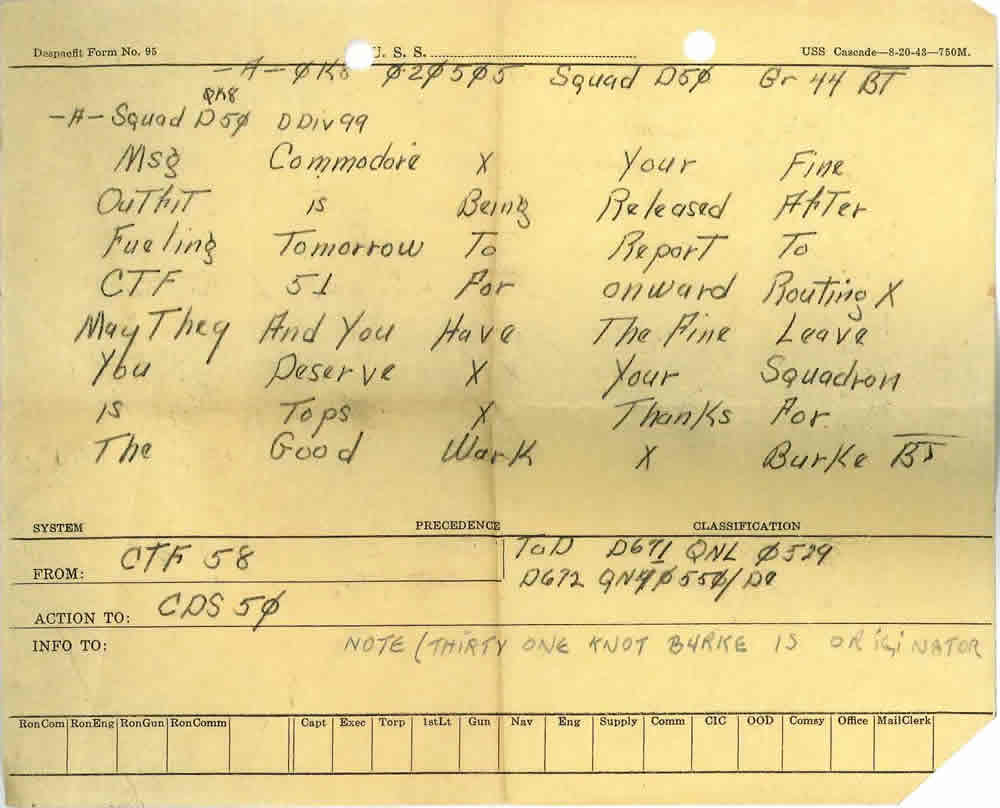 Despacfit Form No. 95 U. S. S. USS Cascade—8-20-43—750M.
-A- ØK8 Ø2Ø5Ø5 Squad D5Ø Gr 44 BT
QK8
-A- Squad D5Ø DDiv99
Msg Commodore X Your Fine
OuTFiT is Being Released AfTer
Fueling Tomorrow To Report To
CTF 51 For onward Routing X
May They And You Have The Fine Leave
You Deserve X Your Squadron
is Tops X Thanks For
The Good Work X Burke BT
SYSTEM PRECEDENCE CLASSIFICATION
FROM: CTF 58 ToD D671 QNL Ø529
D672 Ø55Ø/
ACTION TO: CDS 5Ø
INFO TO: NOTE (THIRTY ONE KNOT BURKE IS ORIGINATOR
RonCom RonEng RonGun RonComm Capt Exec Torp 1stLt Gun Nav Eng Supply Comm CIC OOD Comsy Office MailClerk